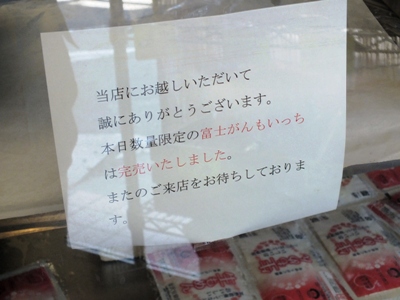 当店にお越しいただいて
誠にありがとうございます。
本日数量限定の富士がんもいっち
は完売いたしました。
またのご来店をお待ちしておりま
す。